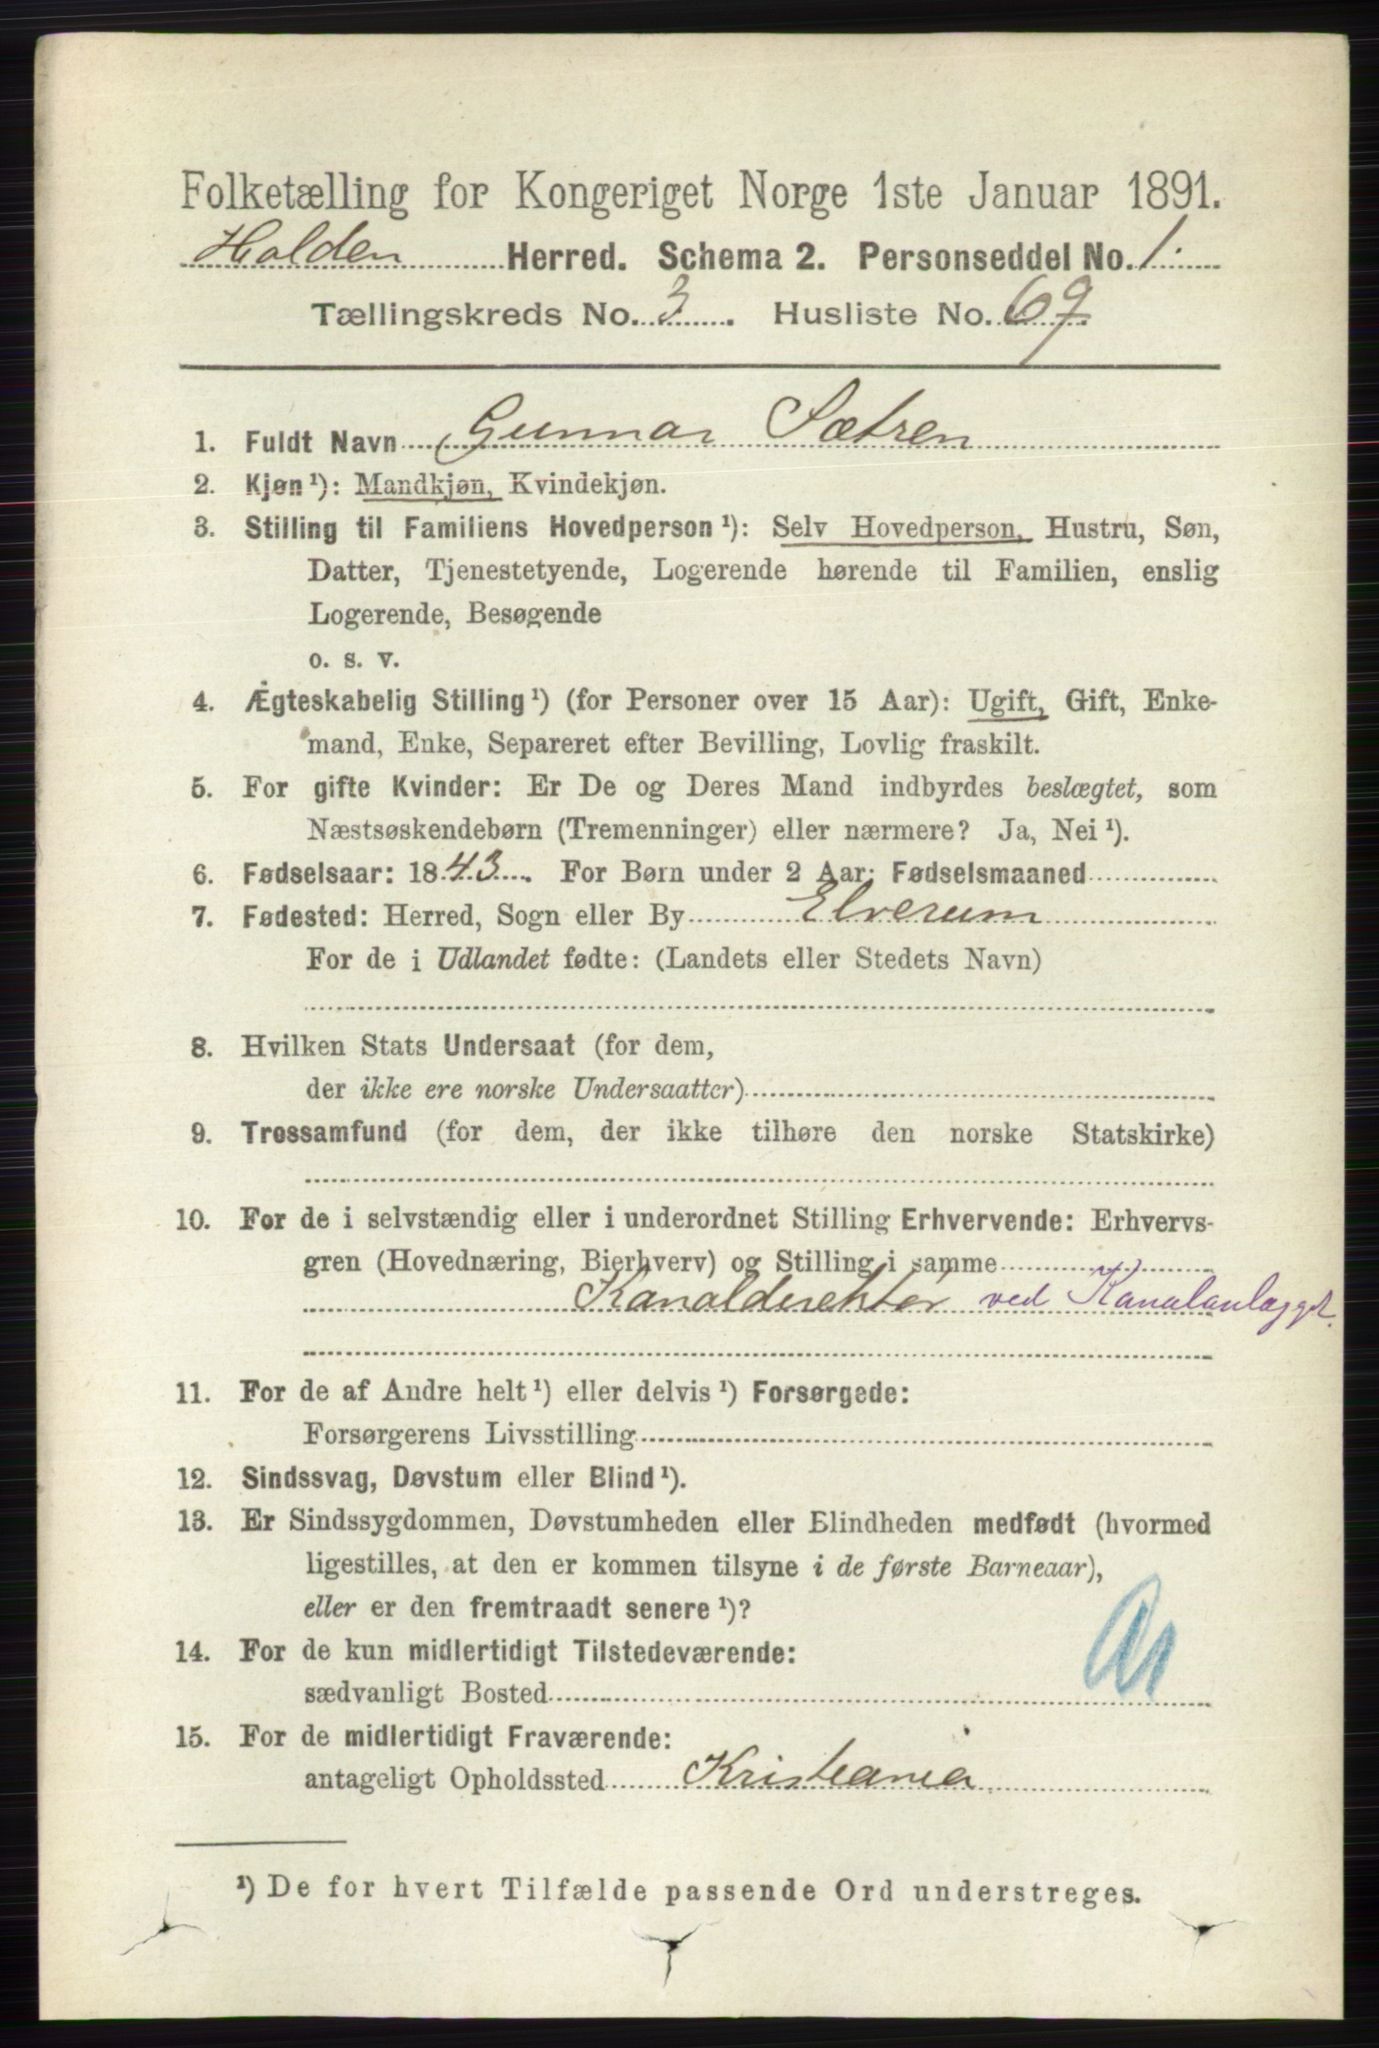 Folketælling for Kongeriget Norge 1ste Januar 1891.
Holden Herred. Schema 2. Personseddel No. 1.
Tællingskreds No. 3. Husliste No. 69.
1. Fuldt Navn Gunnar Sætren
2. Kjøn¹): Mandkjøn, Kvindekjøn.
3. Stilling til Familiens Hovedperson¹): Selv Hovedperson, Hustru, Søn,
Datter, Tjenestetyende, Logerende hørende til Familien, enslig
Logerende, Besøgende
o. s. v.
4. Ægteskabelig Stilling¹) (for Personer over 15 Aar): Ugift, Gift, Enke-
mand, Enke, Separeret efter Bevilling, Lovlig fraskilt.
5. For gifte Kvinder: Er De og Deres Mand indbyrdes beslægtet, som
Næstsøskendebørn (Tremenninger) eller nærmere? Ja, Nei¹).
6. Fødselsaar: 1843. For Børn under 2 Aar: Fødselsmaaned
7. Fødested: Herred, Sogn eller By Elverum
For de i Udlandet fødte: (Landets eller Stedets Navn)
8. Hvilken Stats Undersaat (for dem,
der ikke ere norske Undersaatter)
9. Trossamfund (for dem, der ikke tilhøre den norske Statskirke)
10. For de i selvstændig eller i underordnet Stilling Erhvervende: Erhvervs-
gren (Hovednæring, Bierhverv) og Stilling i samme
Kanaldirektør ved Kanalanlægget.
11. For de af Andre helt¹) eller delvis¹) Forsørgede:
Forsørgerens Livsstilling
12. Sindssvag, Døvstum eller Blind¹).
13. Er Sindssygdommen, Døvstumheden eller Blindheden medfødt (hvormed
ligestilles, at den er kommen tilsyne i de første Barneaar),
eller er den fremtraadt senere¹)?
14. For de kun midlertidigt Tilstedeværende:
sædvanligt Bosted
15. For de midlertidigt Fraværende:
antageligt Opholdssted Kristiania
¹) De for hvert Tilfælde passende Ord understreges.